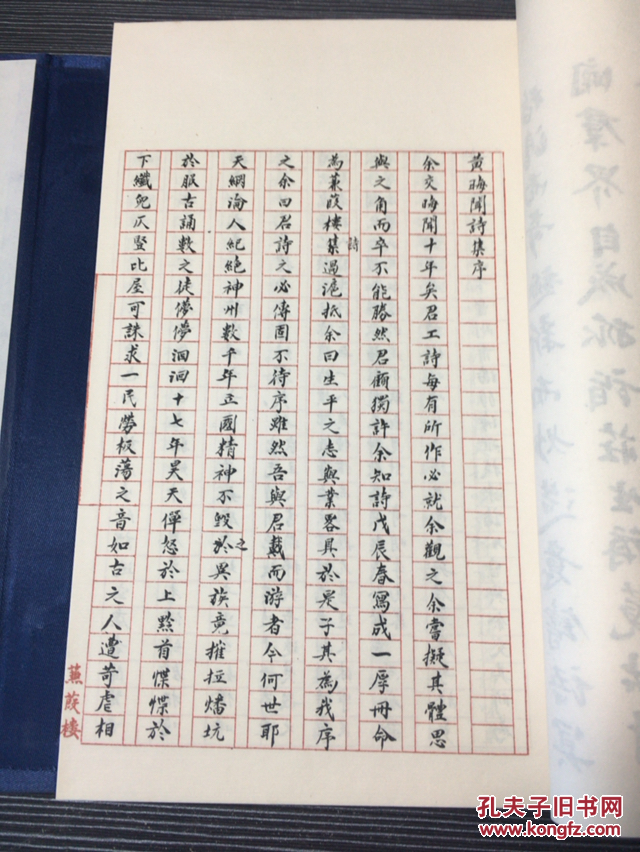 黄晦聞詩集序
余交晦聞十年矣君工詩每有所作必就余觀之余嘗擬其體思
與文角而卒不能勝然君顧獨許余知詩戊辰春寫成一厚冊命
為蒹葭樓詩集過滬抵余曰生平之志與業畧具於是子其為我序
之余曰君詩之必傳固不待序雖然吾與君戴而游者今何世耶
天綱淪人紀絕神州數千年立國精神不毀之於異族竟摧拉燔坑
於服古誦數之徒儚儚洄洄十七年昊天僤怒於上黔首惵惵於
下孅兒仄豎比屋可誅求一民勞板蕩之音如古之人遭苛虐相
蒹葭樓
孔夫子旧书网
www.kongfz.com